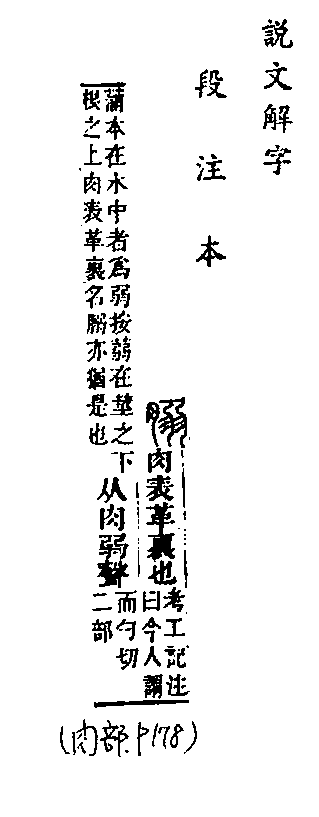 說文解字
段注本
肉表革裏也
考工記注
曰今人謂
蒲本在水中者爲弱按蒻在莖之下
根之上肉表革裏名亦猶是也
从肉弱聲
而勺切
二部
(肉部.P178)